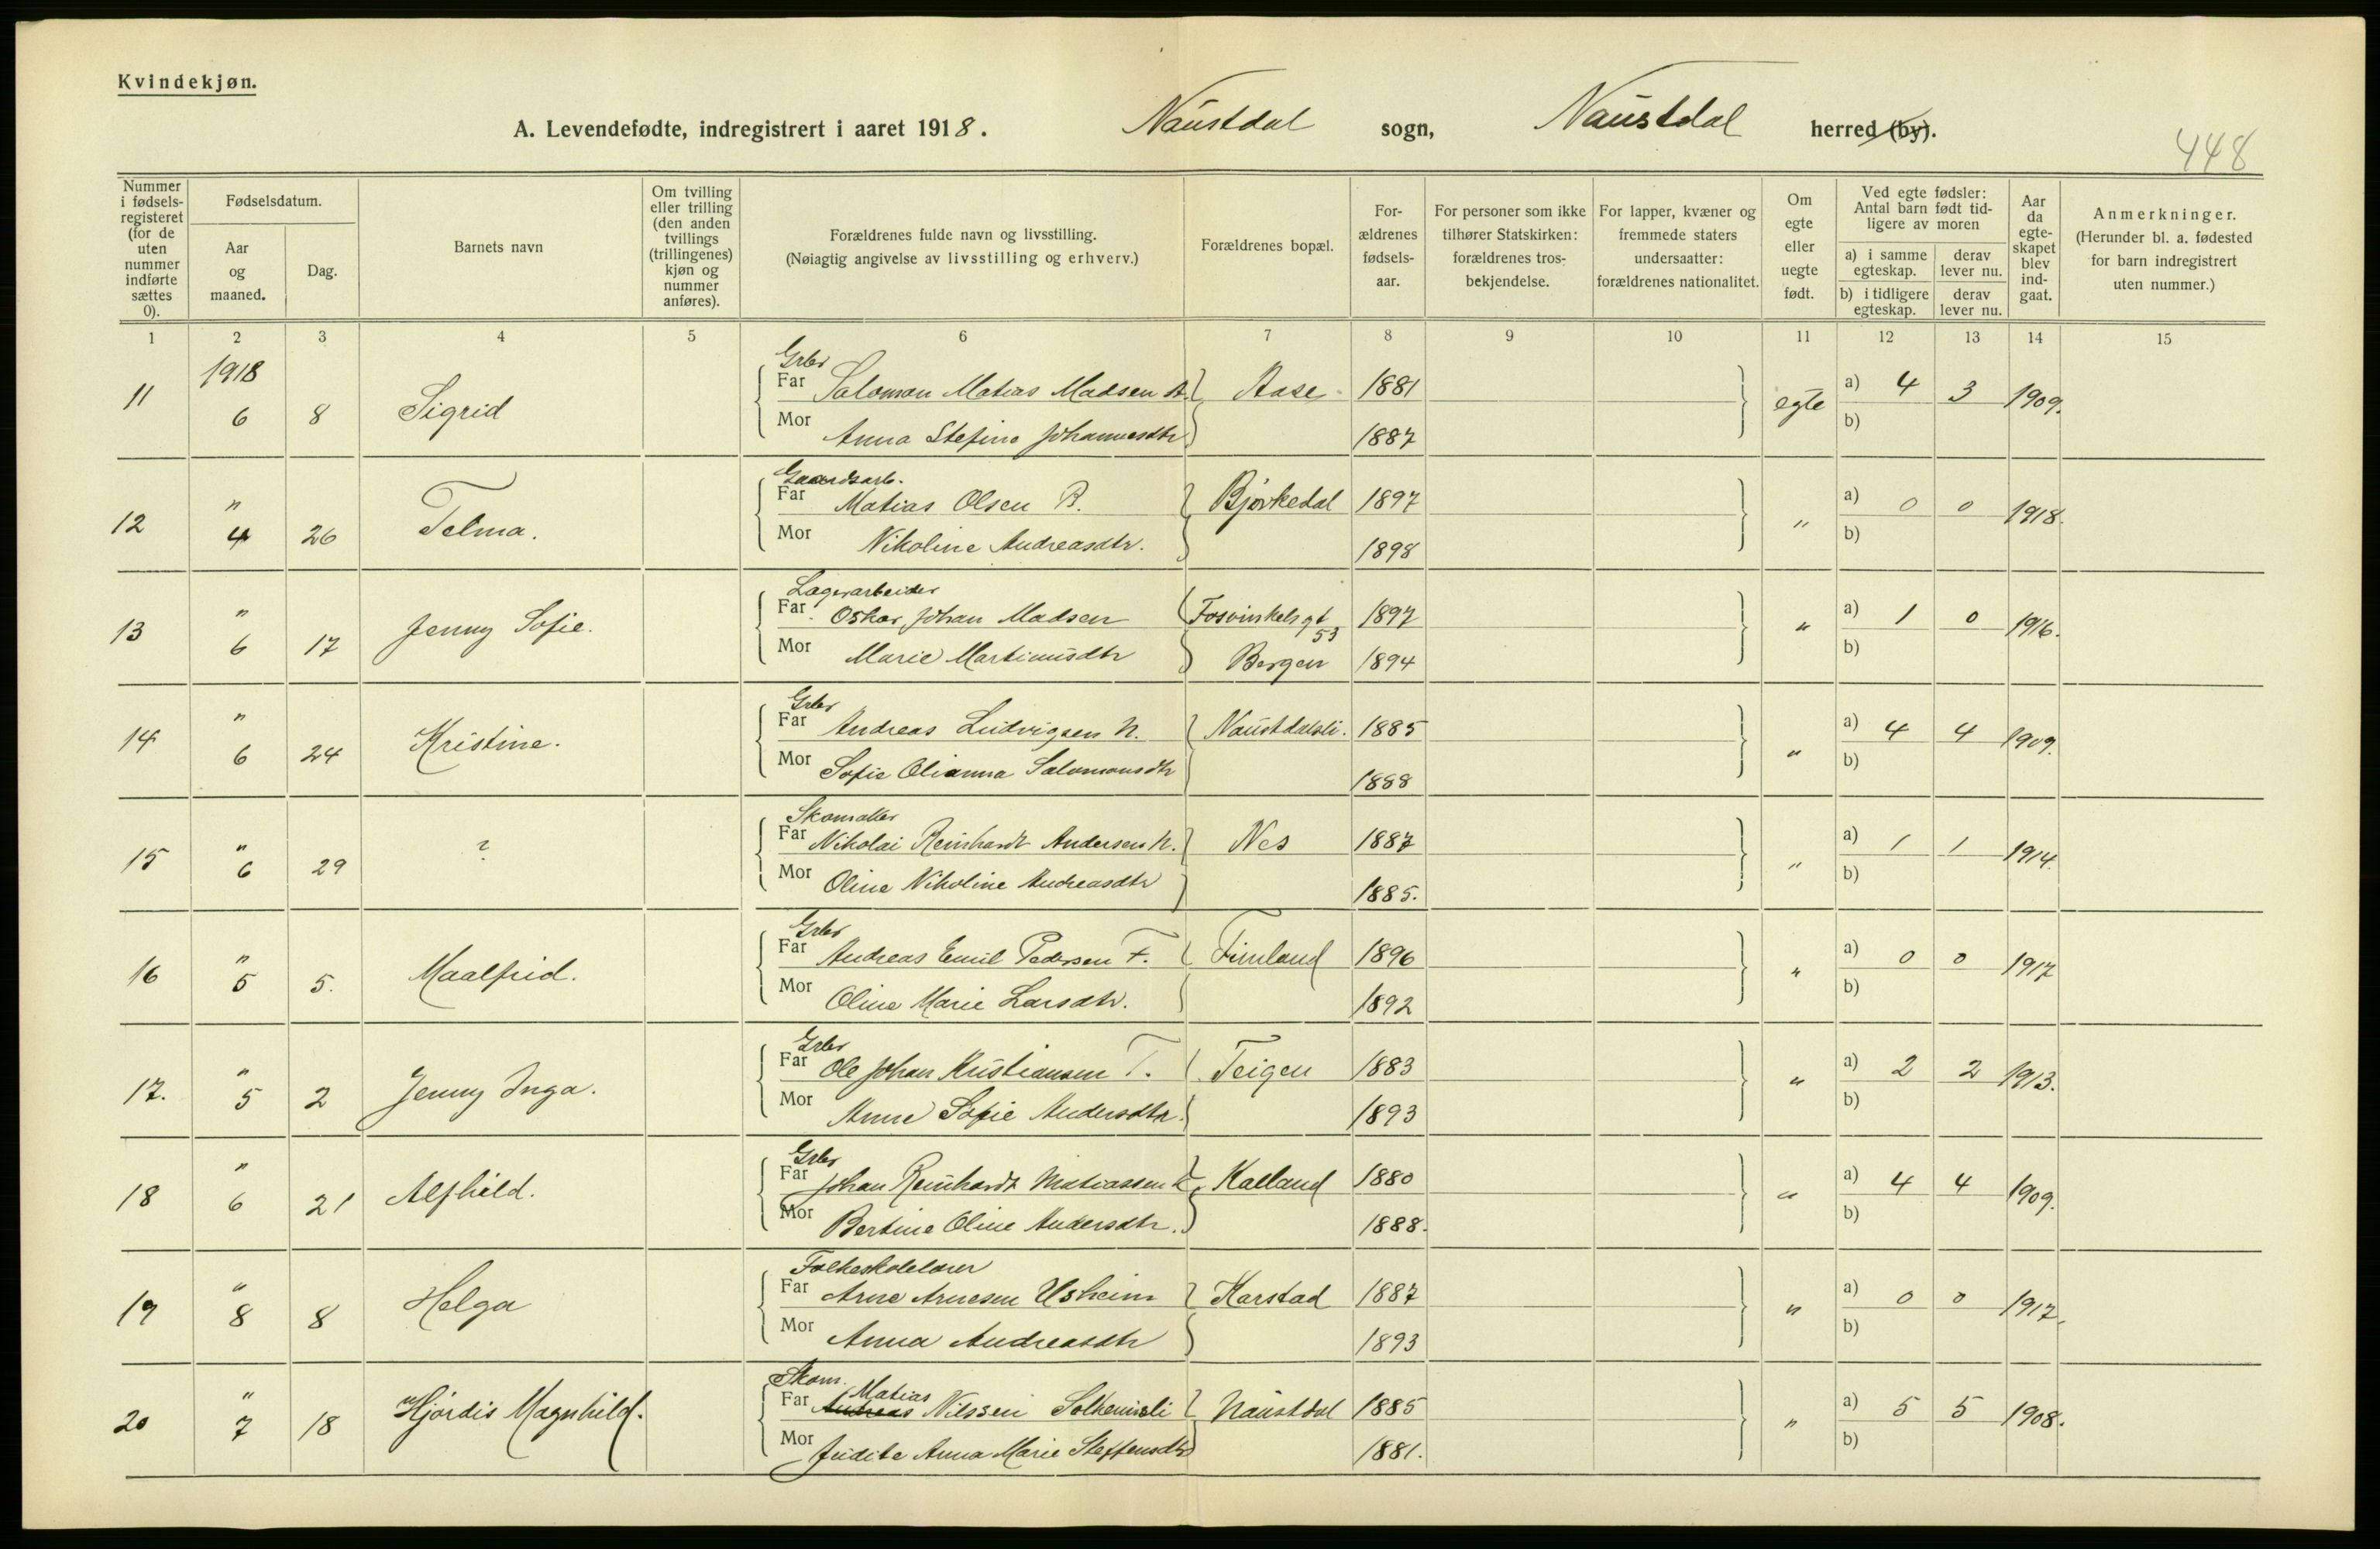 Kvindekjøn.
A. Levendefødte, indregistrert i aaret 1918. Naustdal sogn, Naustdal herred (by).
448
Nummer i fødselsregisteret (for de uten nummer indførte sættes 0).
Fødselsdatum.
Aar og maaned.
Dag.
Barnets navn
Om tvilling eller trilling (den anden tvillings (trillingenes) kjøn og nummer anføres).
Forældrenes fulde navn og livsstilling.
(Nøiagtig angivelse av livsstilling og erhverv.)
Forældrenes bopæl.
Forældrenes fødselsaar.
For personer som ikke tilhører Statskirken: forældrenes trosbekjendelse.
For lapper, kvæner og fremmede staters undersaatter: forældrenes nationalitet.
Om egte eller uegte født.
Ved egte fødsler: Antal barn født tidligere av moren
a) i samme egteskap.
derav lever nu.
b) i tidligere egteskap.
derav lever nu.
Aar da egteskapet blev indgaat.
Anmerkninger.
(Herunder bl. a. fødested for barn indregistrert uten nummer.)
1 2 3 4 5 6 7 8 9 10 11 12 13 14 15
1918
Grbr
11 6 8 Sigrid Far Salomon Matias Madsen A. Aase 1881 egte a) 4 3 1909.
Mor Anna Stefine Johannesdtr 1887 b)
Gaardsarb.
12 " 4 26 Telma. Far Matias Olsen B. Bjørkedal 1897 " a) 0 0 1918.
Mor Nikoline Andreasdtr. 1898 b)
Lagerarbeider
13 " 6 17 Jenny Sofie. Far Oskar Johan Madsen Fosvinkels gt 53 1897 " a) 1 0 1916.
Mor Marie Martinusdtr Bergen 1894 b)
Grbr
14 " 6 24 Kristine. Far Andreas Ludvigsen N. Naustdalsli. 1885 " a) 4 4 1909.
Mor Sofie Olianna Salomonsdtr 1888 b)
Skomaker
15 " 6 29 ? Far Nikolai Reinhardt Andersen N. Nes 1887 " a) 1 1 1914.
Mor Oline Nikoline Andreasdtr 1885. b)
Grbr
16 " 5 5. Maalfrid. Far Andreas Emil Pedersen F. Fimland 1896 " a) 0 0 1917
Mor Oline Marie Larsdtr. 1892 b)
Grbr
17. " 5 2 Jenny Inga. Far Ole Johan Kristiansen T. Teigen 1883 " a) 2 2 1913.
Mor Anne Sofie Andersdtr. 1893 b)
Grbr
18 " 6 21 Alfhild. Far Johan Reinhardt Matiassen K. Kalland 1880 " a) 4 4 1909.
Mor Bertine Oline Andersdtr. 1888. b)
Folkeskolelærer
19 " 8 8 Helga Far Arne Arnesen Usheim Karstad 1887 " a) 0 0 1917.
Mor Anna Andreasdtr 1893 b)
Skom. Matias
20 " 7 18 Hjørdis Magnhild. Far Andreas Nilssen Naustdal 1885 " a) 5 5 1908.
Mor Judite Anna Marie Steffensdtr 1881. b)